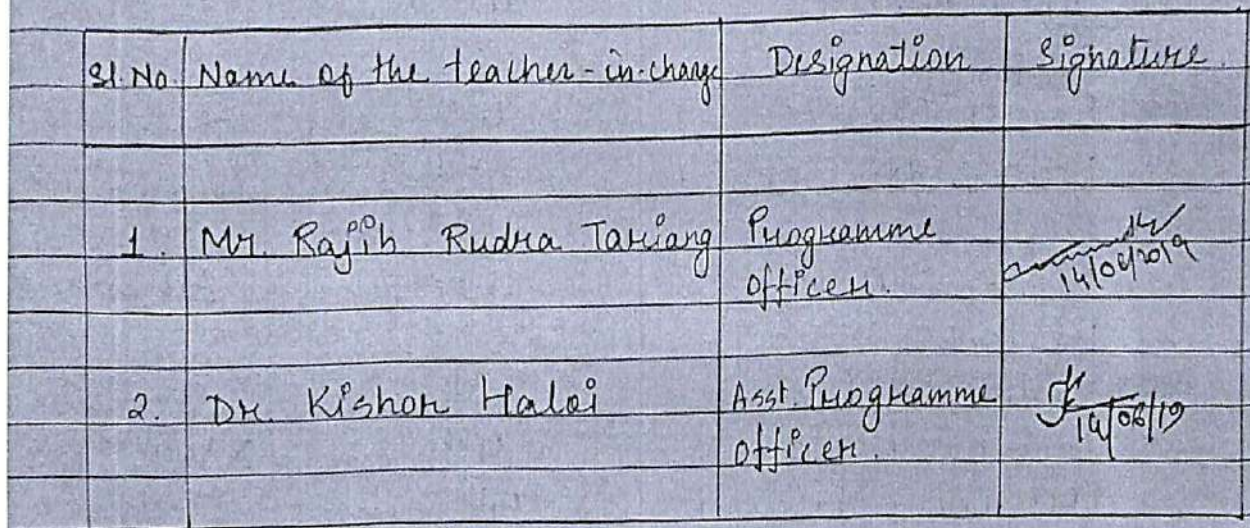 Sl. No. Name of the teacher-in-charge Designation Signature.
1. Mr. Rajib Rudra Tariang Programme
Officer.
14/06/2019
2. Dr. Kishor Haloi Asst. Programme
Officer.
14/06/19